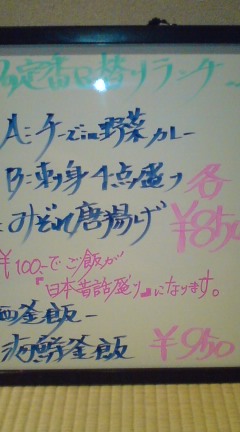 定番日替りランチ〜
A:チーズin野菜カレー
B:刺身4点盛り 各
:みぞれ唐揚げ ¥850
¥100-でご飯が
『日本昔話盛り』になります。
釜飯ー
海鮮釜飯 ¥950